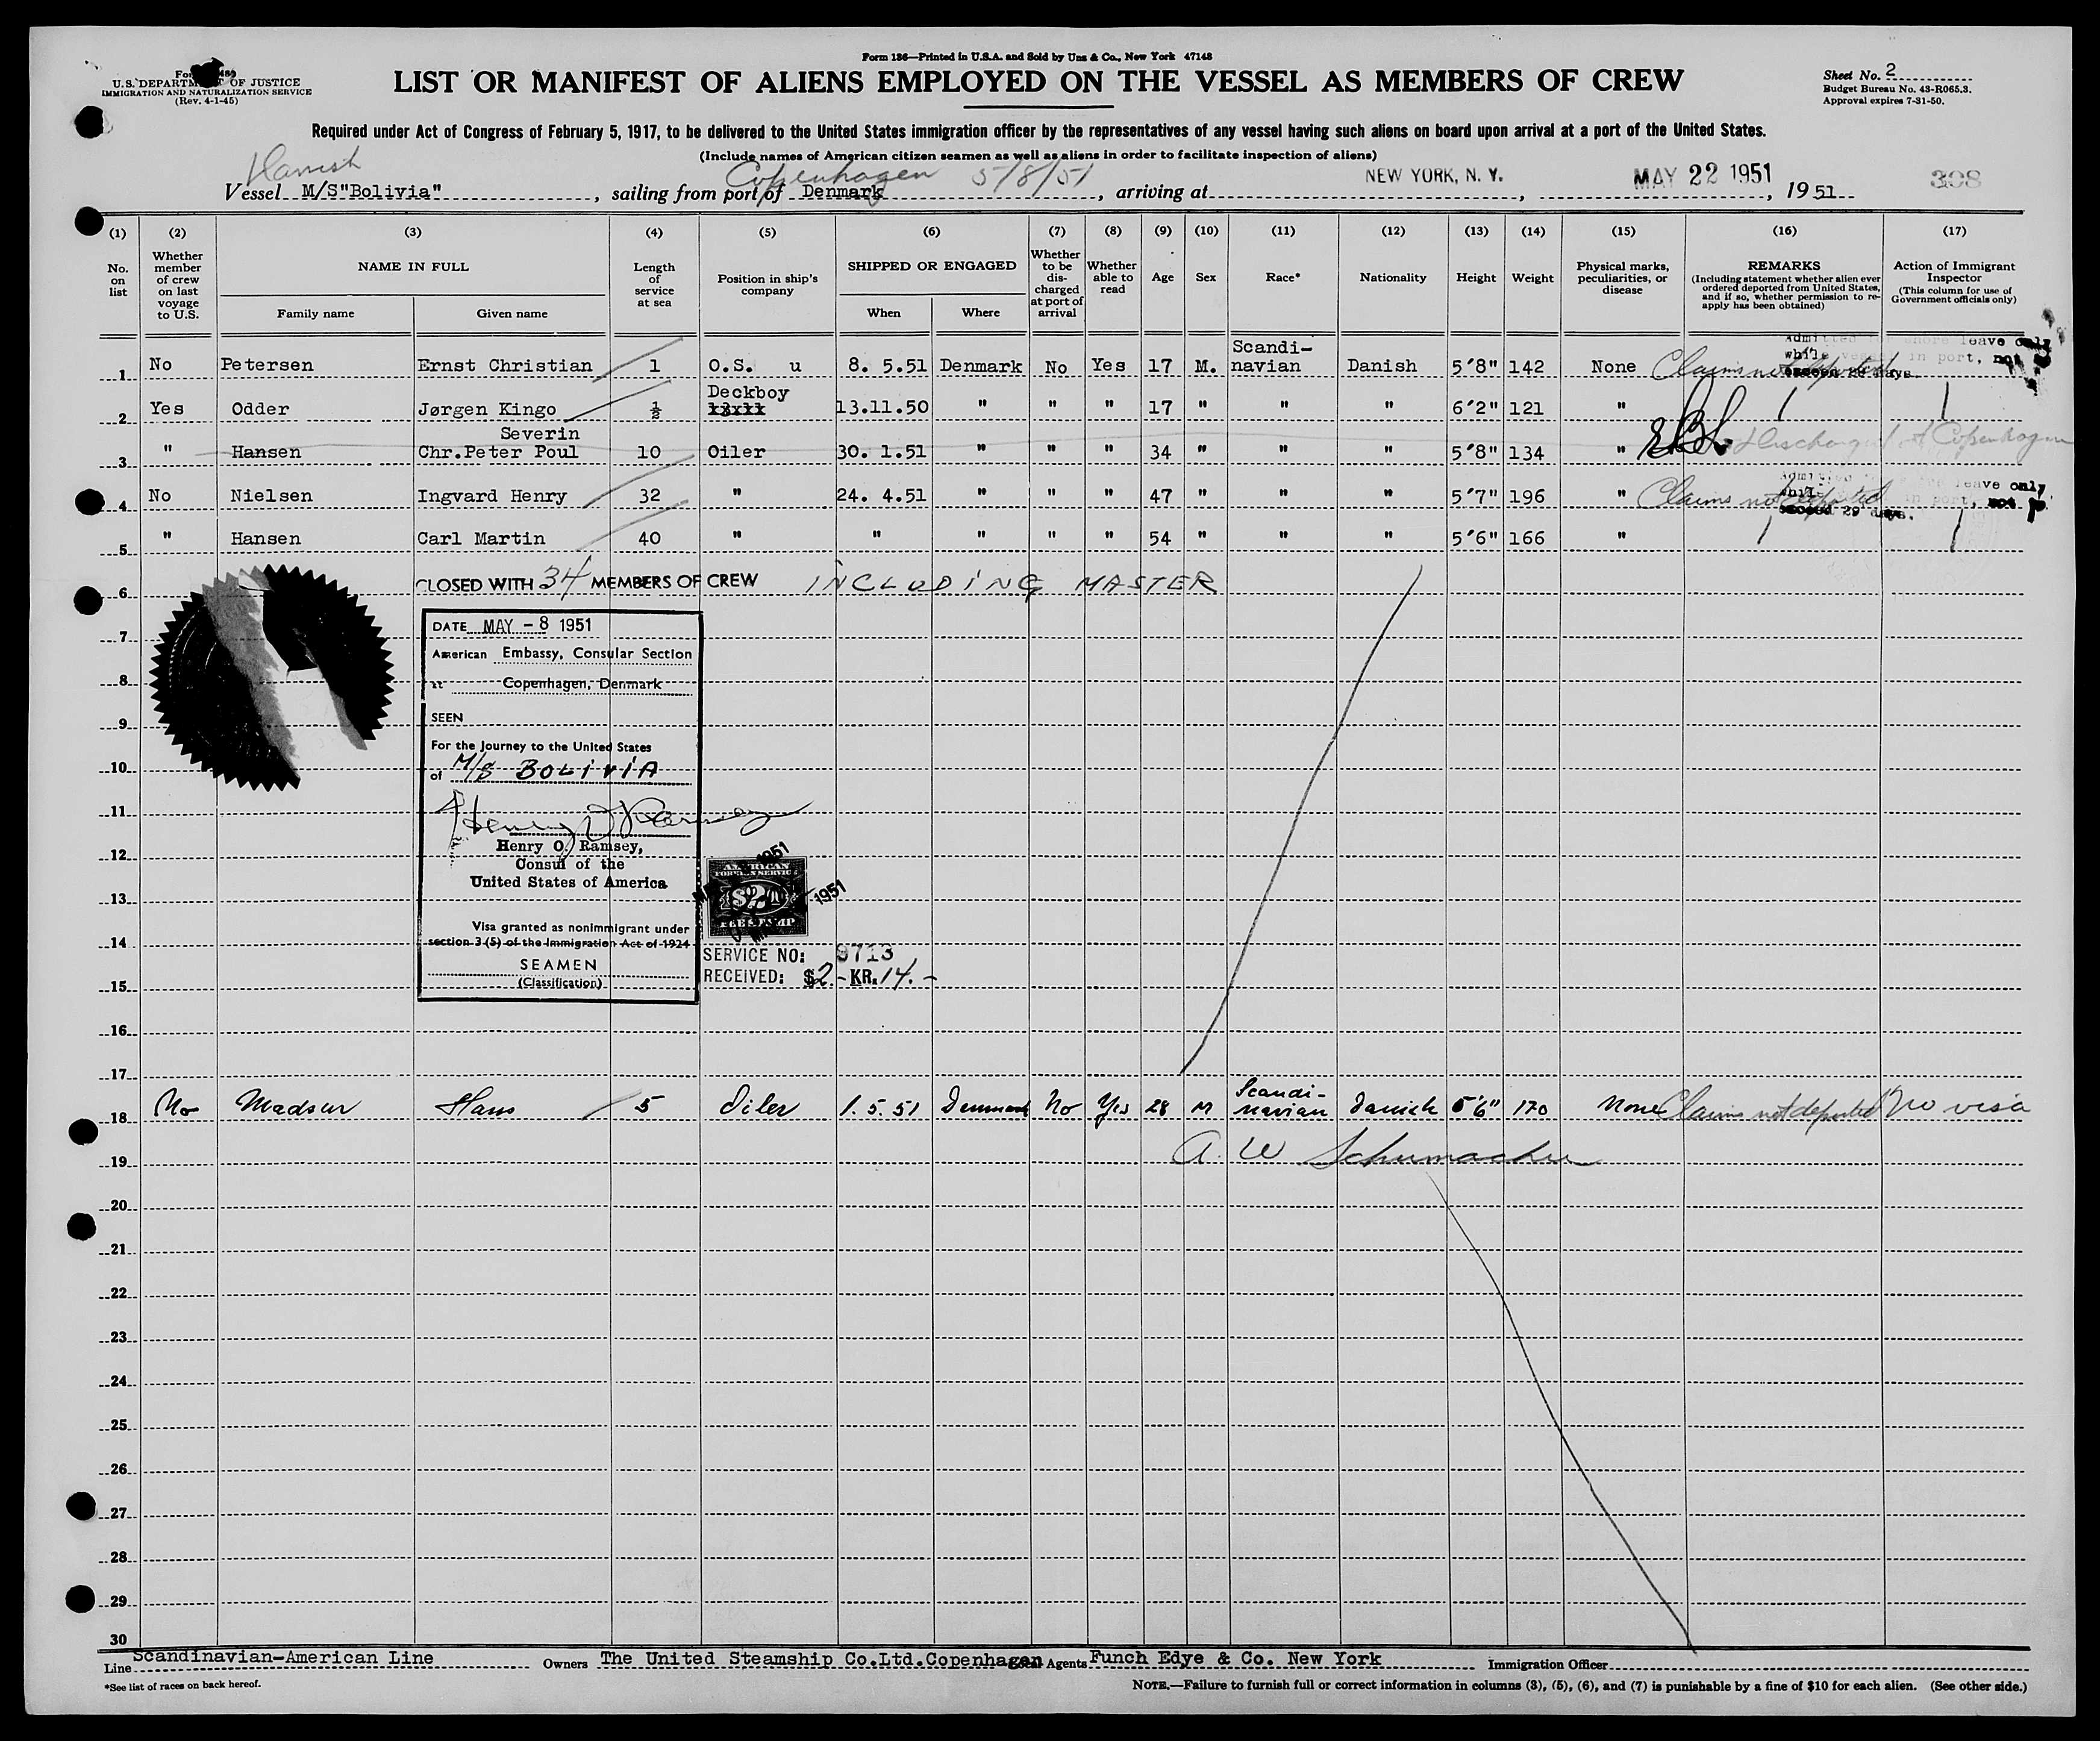 Form 136—Printed in U.S.A. and Sold by Unz & Co., New York 47148
U.S. DEPARTMENT OF JUSTICE
IMMIGRATION AND NATURALIZATION SERVICE
(Rev. 4-1-45)
LIST OR MANIFEST OF ALIENS EMPLOYED ON THE VESSEL AS MEMBERS OF CREW
Sheet No. 2
Budget Bureau No. 43-R065.3.
Approval expires 7-31-50.
Required under Act of Congress of February 5, 1917, to be delivered to the United States immigration officer by the representatives of any vessel having such aliens on board upon arrival at a port of the United States.
(Include names of American citizen seamen as well as aliens in order to facilitate inspection of aliens)
Danish Copenhagen 5/8/51 NEW YORK, N. Y. MAY 22 1951 308
Vessel M/S"Bolivia", sailing from port of Denmark, arriving at , , 1951
(1) (2) (3) (4) (5) (6) (7) (8) (9) (10) (11) (12) (13) (14) (15) (16) (17)
No. on list
Whether member of crew on last voyage to U.S.
NAME IN FULL
Family name Given name
Length of service at sea
Position in ship's company
SHIPPED OR ENGAGED
When Where
Whether to be discharged at port of arrival
Whether able to read
Age
Sex
Race*
Nationality
Height
Weight
Physical marks, peculiarities, or disease
REMARKS
(Including statement whether alien ever ordered deported from United States, and if so, whether permission to reapply has been obtained)
Action of Immigrant Inspector
(This column for use of Government officials only)
Admitted for shore leave only
while vessel in port, not
exceed 29 days.
1 No Petersen Ernst Christian 1 O.S. u 8. 5.51 Denmark No Yes 17 M. Scandi-navian Danish 5'8" 142 None Claims not deported
2 Yes Odder Jørgen Kingo ½ Deckboy 13.11.50 " " " 17 " " " 6'2" 121 "
3 " Hansen Severin Chr.Peter Poul 10 Oiler 30. 1.51 " " " 34 " " " 5'8" 134 " Discharged at Copenhagen
Admitted for shore leave only
while vessel in port, not
exceed 29 days.
4 No Nielsen Ingvard Henry 32 " 24. 4.51 " " " 47 " " " 5'7" 196 " Claims not deported
5 " Hansen Carl Martin 40 " " " " " 54 " " " 5'6" 166 "
6 CLOSED WITH 34 MEMBERS OF CREW INCLUDING MASTER
DATE MAY - 8 1951
7
American Embassy, Consular Section
8 at Copenhagen, Denmark
SEEN
9
For the Journey to the United States
10 of M/S BOLIVIA
11 Henry O Ramsey
Henry O. Ramsey,
12 Consul of the
United States of America
AMERICAN
FOREIGN SERVICE
$2
FEE STAMP
1951
1951
13
Visa granted as nonimmigrant under
14 section 3 (5) of the Immigration Act of 1924
SEAMEN
(Classification)
SERVICE NO: 9713
RECEIVED: $2.- KR. 14.-
15
16
17
18 No Madsen Hans 5 Oiler 1. 5. 51 Denmark No Yes 28 M Scandi-navian Danish 5'6" 170 None Claims not deported No visa
19 A. W Schumacher
20
21
22
23
24
25
26
27
28
29
30
Line Scandinavian-American Line Owners The United Steamship Co.Ltd.Copenhagen Agents Funch Edye & Co. New York Immigration Officer
*See list of races on back hereof.
NOTE.—Failure to furnish full or correct information in columns (3), (5), (6), and (7) is punishable by a fine of $10 for each alien. (See other side.)